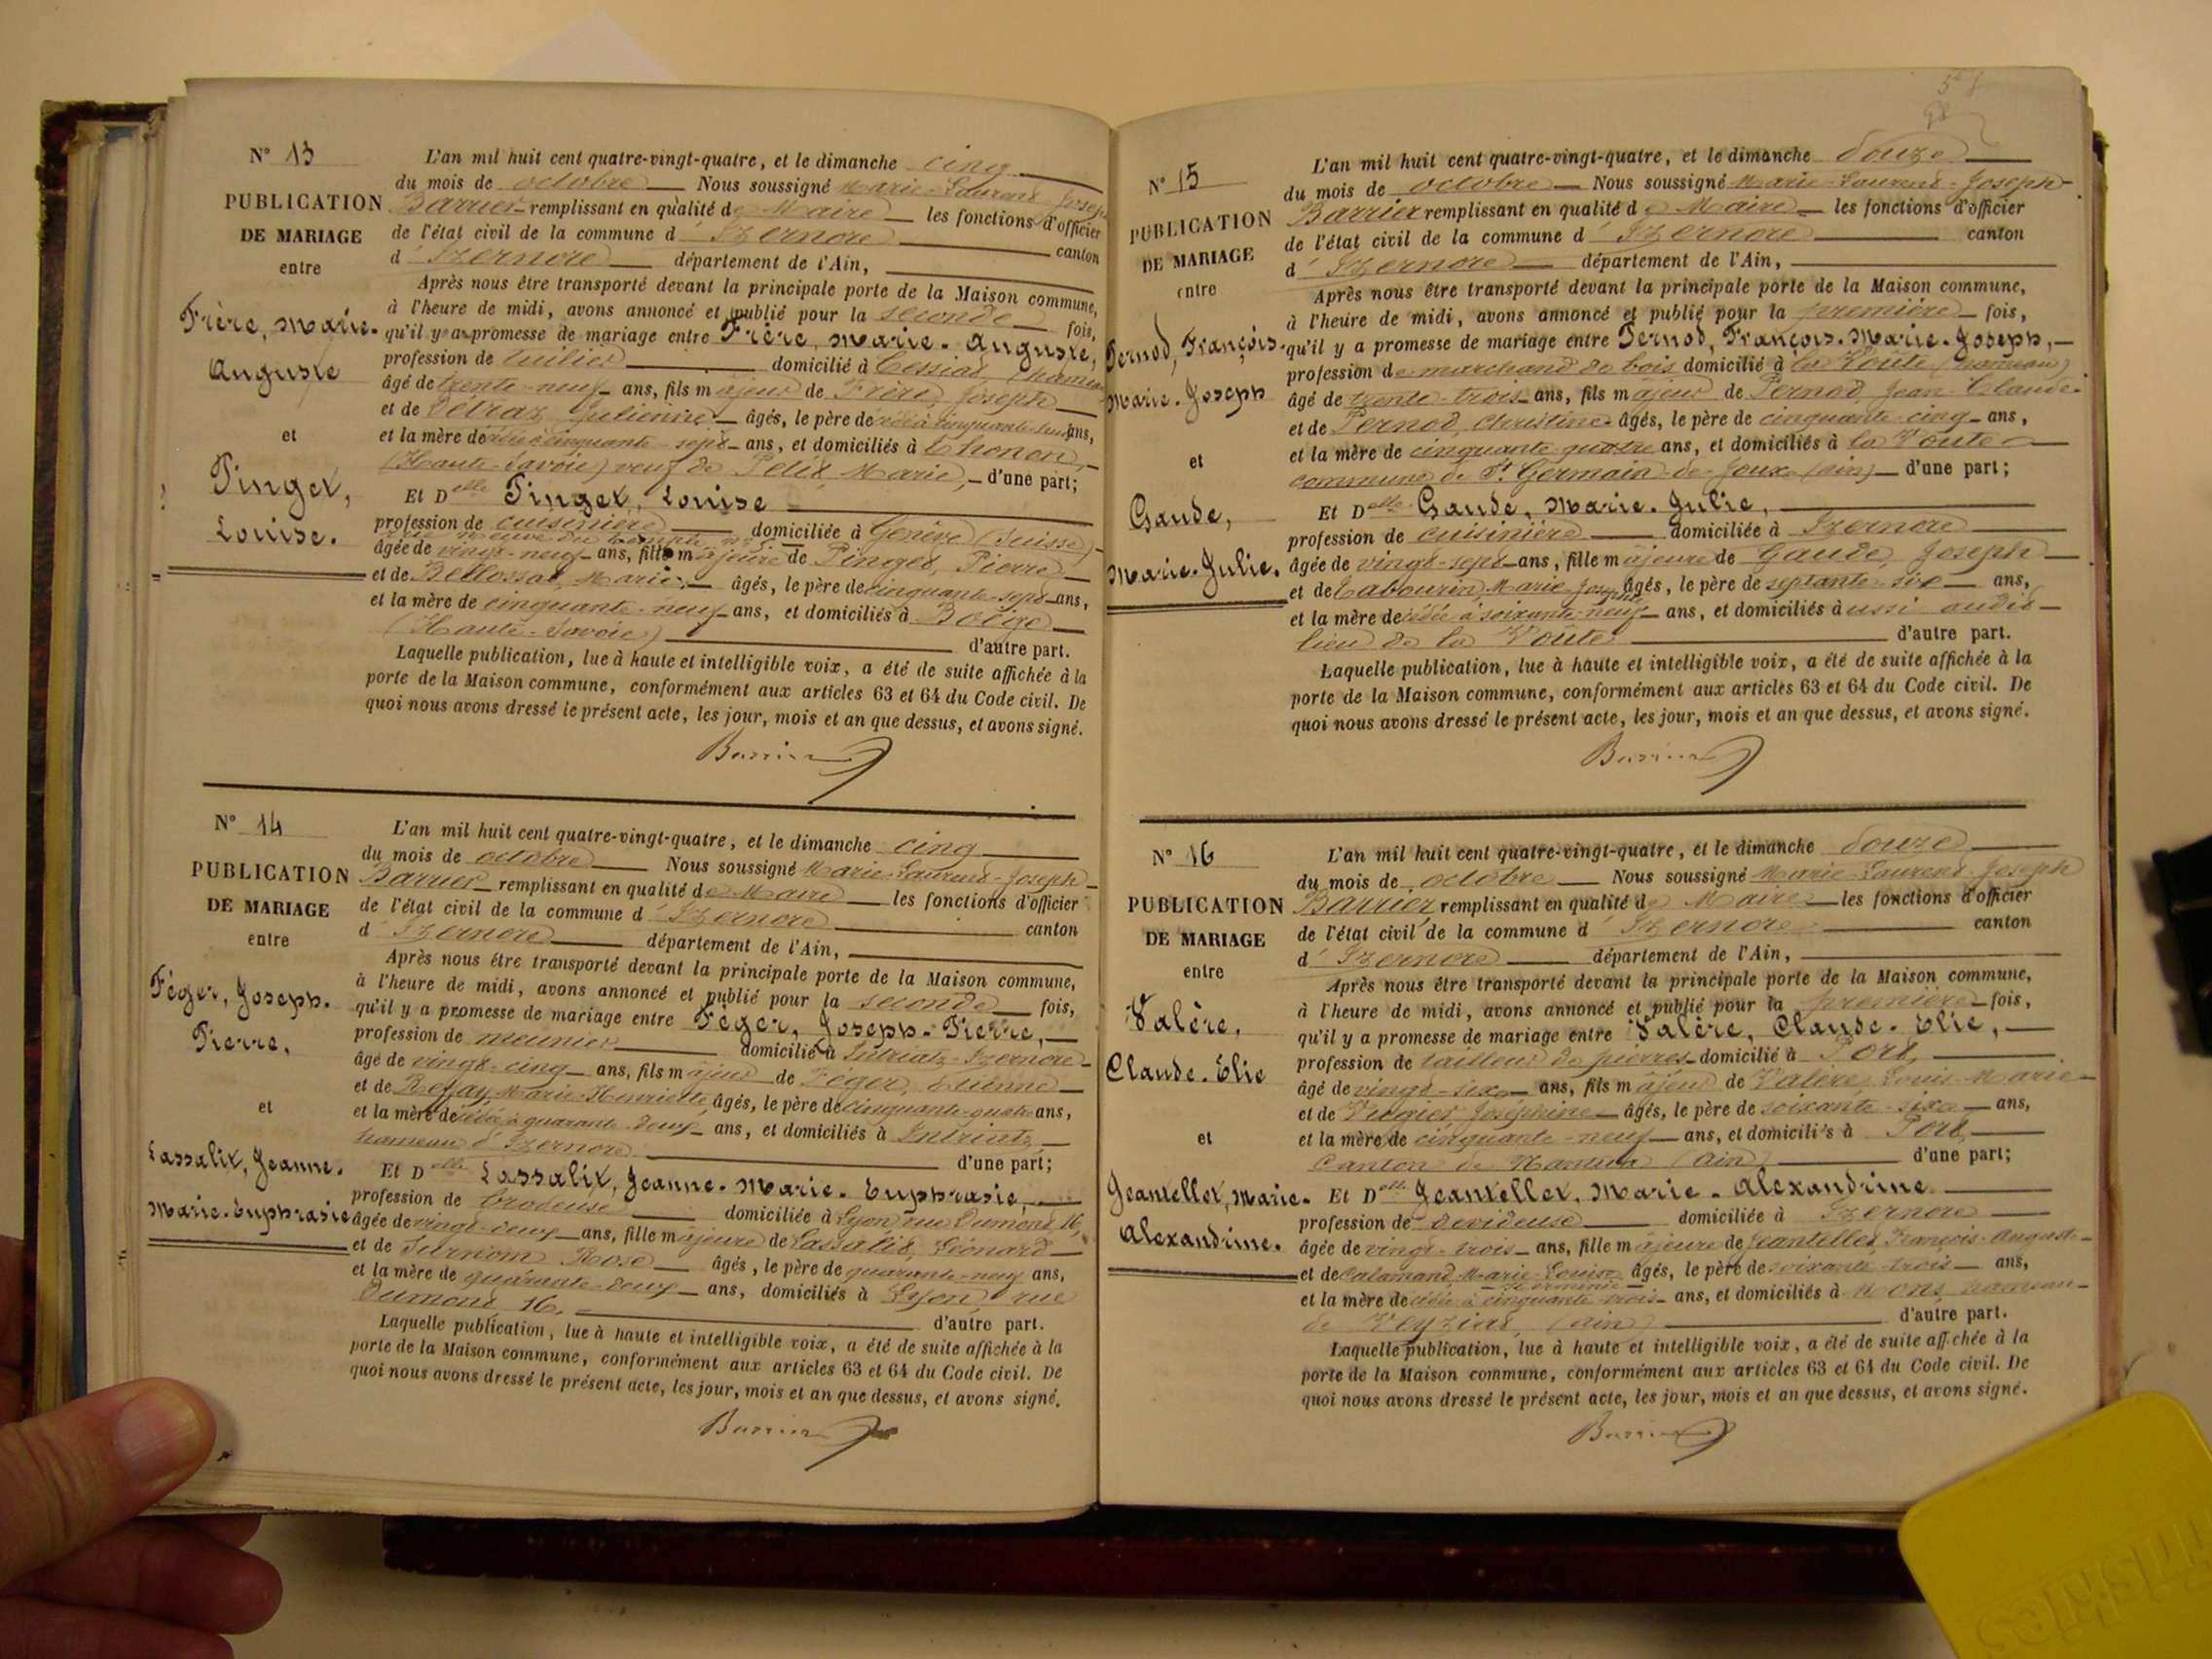 N° 13
PUBLICATION
DE MARIAGE
entre
Frère, Marie-
Auguste
et
Pinget,
Louise.
L'an mil huit cent quatre-vingt-quatre, et le dimanche cinq
du mois de octobre Nous soussigné Marie-Laurent Joseph
Barrier remplissant en qualité de Maire les fonctions d'officier
de l'état civil de la commune d'Izernore canton
d'Izernore département de l'Ain,
Après nous être transporté devant la principale porte de la Maison commune,
à l'heure de midi, avons annoncé et publié pour la seconde fois,
qu'il y a promesse de mariage entre Frère, Marie-Auguste,
profession de tuilier domicilié à Cessiat, (hameau
âgé de trente-neuf ans, fils majeur de Frère, Joseph
et de Détraz, Julienne âgés, le père décédé à cinquante-huit ans,
et la mère décédée à cinquante-sept ans, et domiciliés à Thonon,
(Haute-Savoie) veuf de Marie, d'une part;
Et Delle Pinget, Louise
profession de cuisinière domiciliée à Genève (Suisse)
rue neuve du temple
âgée de vingt-neuf ans, fille majeure de Pinget, Pierre
et de Bellossat, Marie, âgés, le père de cinquante-sept ans,
et la mère de cinquante-neuf ans, et domiciliés à Boëge
(Haute-Savoie) d'autre part.
Laquelle publication, lue à haute et intelligible voix, a été de suite affichée à la
porte de la Maison commune, conformément aux articles 63 et 64 du Code civil. De
quoi nous avons dressé le présent acte, les jour, mois et an que dessus, et avons signé.
Barrier
N° 14
PUBLICATION
DE MARIAGE
entre
Féger, Joseph-
Pierre,
et
Lassalit, Jeanne-
Marie-Euphrasie
L'an mil huit cent quatre-vingt-quatre, et le dimanche cinq
du mois de octobre Nous soussigné Marie-Laurent-Joseph
Barrier remplissant en qualité de Maire les fonctions d'officier
de l'état civil de la commune d'Izernore canton
d'Izernore département de l'Ain,
Après nous être transporté devant la principale porte de la Maison commune,
à l'heure de midi, avons annoncé et publié pour la seconde fois,
qu'il y a promesse de mariage entre Féger, Joseph-Pierre,
profession de meunier domicilié à Intriatz-Izernore
âgé de vingt-cinq ans, fils majeur de Féger, Etienne
et de Refay, Marie-Henriette âgés, le père de cinquante-quatre ans,
et la mère décédée à quarante-deux ans, et domiciliés à Intriatz
hameau d'Izernore d'une part;
Et Delle Lassalit, Jeanne-Marie-Euphrasie,
profession de brodeuse domiciliée à Lyon rue Dumont 16,
âgée de vingt-deux ans, fille majeure de Lassalit, Léonard
et de Surnom Rose âgés, le père de quarante-neuf ans,
et la mère de quarante-deux ans, domiciliés à Lyon rue
Dumont 16. d'autre part.
Laquelle publication, lue à haute et intelligible voix, a été de suite affichée à la
porte de la Maison commune, conformément aux articles 63 et 64 du Code civil. De
quoi nous avons dressé le présent acte, les jour, mois et an que dessus, et avons signé.
Barrier
N° 15
PUBLICATION
DE MARIAGE
entre
Pernod, François-
Marie-Joseph
et
Gaude,
Marie-Julie.
L'an mil huit cent quatre-vingt-quatre, et le dimanche douze
du mois de octobre Nous soussigné Marie-Laurent-Joseph
Barrier remplissant en qualité de Maire les fonctions d'officier
de l'état civil de la commune d'Izernore canton
d'Izernore département de l'Ain,
Après nous être transporté devant la principale porte de la Maison commune,
à l'heure de midi, avons annoncé et publié pour la première fois,
qu'il y a promesse de mariage entre Pernod, François-Marie-Joseph,
profession de marchand de bois domicilié à la Voûte (hameau)
âgé de trente-trois ans, fils majeur de Pernod, Jean-Claude
et de Pernod, Christine âgés, le père de cinquante-cinq ans,
et la mère de cinquante quatre ans, et domiciliés à la Voûte
commune de St Germain-de-Joux (Ain) d'une part;
Et Delle Gaude, Marie-Julie,
profession de cuisinière domiciliée à Izernore
âgée de vingt-sept ans, fille majeure de Gaude, Joseph
et de Tabourin, Marie Josephte âgés, le père de septante-six ans,
et la mère décédée à soixante-neuf ans, et domiciliés aussi audit
lieu de la Voûte d'autre part.
Laquelle publication, lue à haute et intelligible voix, a été de suite affichée à la
porte de la Maison commune, conformément aux articles 63 et 64 du Code civil. De
quoi nous avons dressé le présent acte, les jour, mois et an que dessus, et avons signé.
Barrier
N° 16
PUBLICATION
DE MARIAGE
entre
Valère,
Claude-Elie
et
Jeantellet, Marie-
Alexandrine.
L'an mil huit cent quatre-vingt-quatre, et le dimanche douze
du mois de octobre Nous soussigné Marie-Laurent-Joseph
Barrier remplissant en qualité de Maire les fonctions d'officier
de l'état civil de la commune d'Izernore canton
d'Izernore département de l'Ain,
Après nous être transporté devant la principale porte de la Maison commune,
à l'heure de midi, avons annoncé et publié pour la première fois,
qu'il y a promesse de mariage entre Valère, Claude-Elie,
profession de tailleur de pierres domicilié à Port,
âgé de vingt-six ans, fils majeur de Valère, Louis-Marie
et de Joséphine âgés, le père de soixante-six ans,
et la mère de cinquante-neuf ans, et domiciliés à Port,
canton de Nantua (Ain) d'une part;
Et Delle Jeantellet, Marie-Alexandrine
profession de devideuse domiciliée à Izernore
âgée de vingt-trois ans, fille majeure de Jeantellet, François-Auguste
et de Calamand, Marie-Louise âgés, le père de soixante-trois ans,
et la mère décédée à cinquante-trois ans, et domiciliés à Mons hameau
de Veyziat, (Ain) d'autre part.
Laquelle publication, lue à haute et intelligible voix, a été de suite affichée à la
porte de la Maison commune, conformément aux articles 63 et 64 du Code civil. De
quoi nous avons dressé le présent acte, les jour, mois et an que dessus, et avons signé.
Barrier